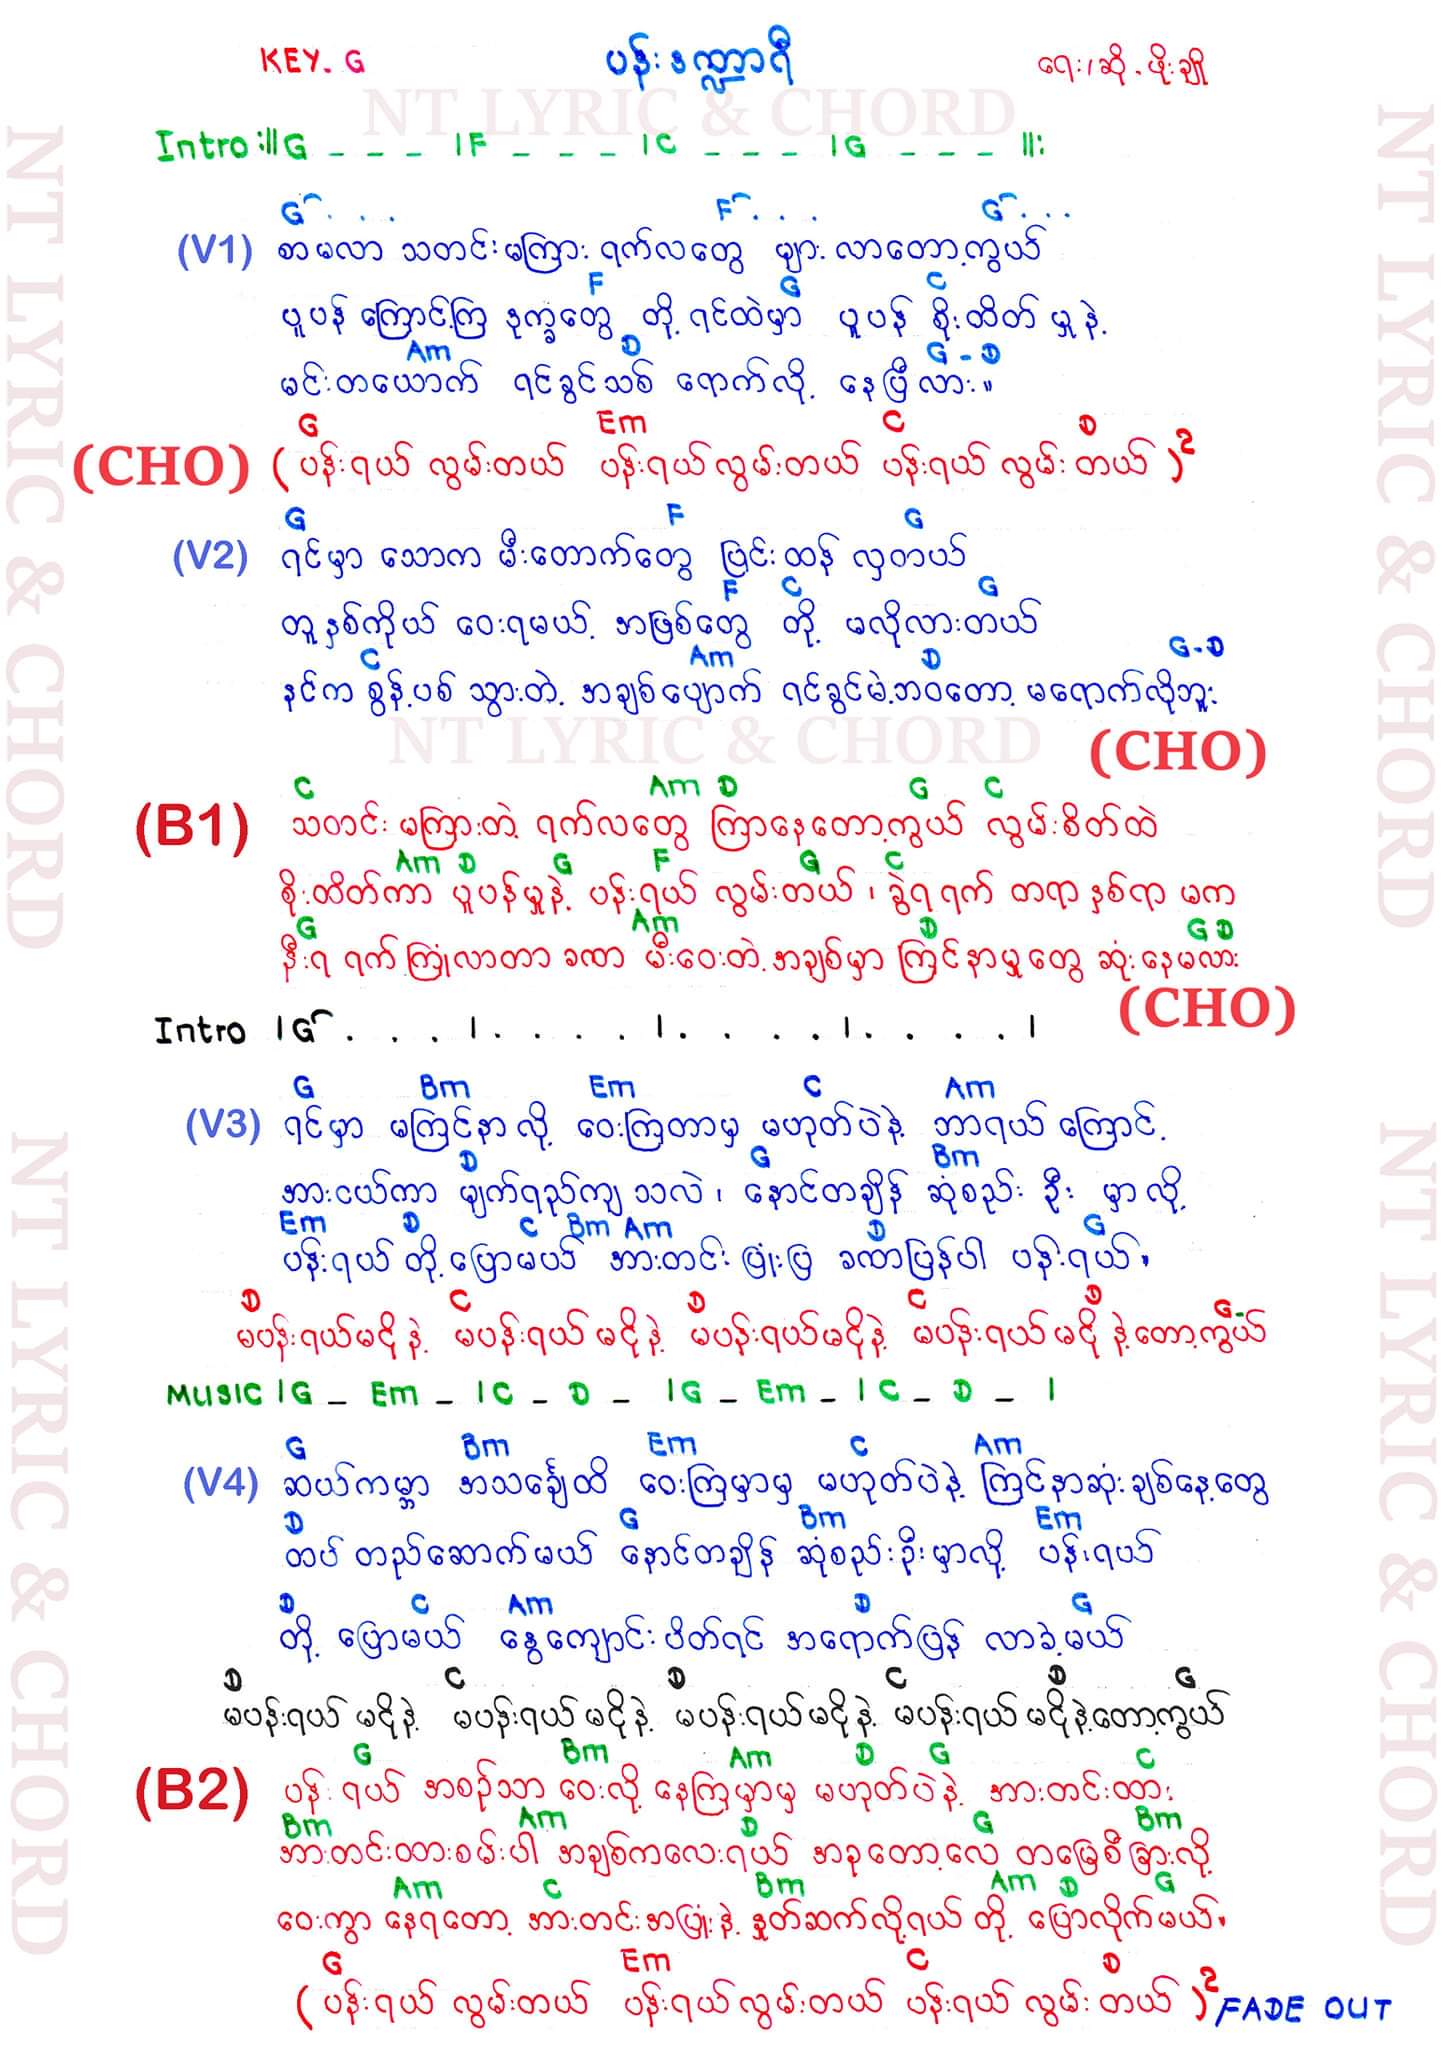 KEY. G ပန်းဒဏ္ဍာရီ ရေး/ဆို - ဖိုးချို
NT LYRIC & CHORD
Intro :॥G _ _ _ |F _ _ _ |C _ _ _ |G _ _ _ ॥:
G . . . F . . . G . . .
(V1) စာမလာ သတင်းမကြား ရက်လတွေ များလာတော့ကွယ်
F G C
ပူပန်ကြောင့်ကြ ဒုက္ခတွေ တို့ရင်ထဲမှာ ပူပန် စိုးထိတ်မှုနဲ့
Am D G - D
မင်းတယောက် ရင်ခွင်သစ် ရောက်လို့ နေပြီလား။
G Em C D
(CHO) (ပန်းရယ် လွမ်းတယ် ပန်းရယ်လွမ်းတယ် ပန်းရယ် လွမ်းတယ်)2
G F G
(V2) ရင်မှာ သောက မီးတောက်တွေ ပြင်းထန် လှတယ်
F C G
တူနှစ်ကိုယ် ဝေးရမယ့် အဖြစ်တွေ တို့ မလိုလားတယ်
C Am D G-D
နင်က စွန့်ပစ် သွားတဲ့ အချစ်ပျောက် ရင်ခွင်မဲ့ဘဝတော့ မရောက်လိုဘူး
NT LYRIC & CHORD
(CHO)
C Am D G C
(B1) သတင်း မကြားတဲ့ ရက်လတွေ ကြာနေတော့ကွယ် လွမ်းစိတ်ထဲ
Am D G F G C
စိုးထိတ်ကာ ပူပန်မှုနဲ့ ပန်းရယ် လွမ်းတယ်၊ ခွဲရရက် တရာနှစ်ရာ မက
G Am D G D
နီးရ ရက်ကြုံလာတာ ခဏ မီးဝေးတဲ့အချစ်မှာ ကြင်နာမှုတွေ ဆုံးနေမလား
(CHO)
Intro |G . . . |. . . . |. . . . |. . . . |
G Bm Em C Am
(V3) ရင်မှာ မကြင်နာလို့ ဝေးကြတာမှ မဟုတ်ပဲနဲ့ ဘာရယ်ကြောင့်
D G Bm
အားငယ်ကာ မျက်ရည်ကျ သလဲ၊ နောင်တချိန် ဆုံစည်း ဦး မှာလို့
Em D C Bm Am D G
ပန်းရယ် တို့ပြောမယ် အားတင်း ပြုံးပြ ခဏပြန်ပါ ပန်းရယ်။
D C D C D G-
မပန်းရယ်မငိုနဲ့ မပန်းရယ်မငိုနဲ့ မပန်းရယ်မငိုနဲ့ မပန်းရယ်မငိုနဲ့တော့ကွယ်
MUSIC |G _ Em _ |C _ D _ |G _ Em _ |C _ D _ |
G Bm Em C Am
(V4) ဆယ်ကမ္ဘာ အသင်္ချေထိ ဝေးကြမှာမှ မဟုတ်ပဲနဲ့ ကြင်နာဆုံးချစ်နေ့တွေ
D G Bm Em
ထပ် တည်ဆောက်မယ် နောင်တချိန် ဆုံစည်းဦးမှာလို့ ပန်းရယ်
D C Am D G
တို့ ပြောမယ် နွေကျောင်းပိတ်ရင် အရောက်ပြန် လာခဲ့မယ်
D C D C D G
မပန်းရယ် မငိုနဲ့ မပန်းရယ်မငိုနဲ့ မပန်းရယ်မငိုနဲ့ မပန်းရယ်မငိုနဲ့တော့ကွယ်
G Bm Am D G C
(B2) ပန်းရယ် အစဉ်သာ ဝေးလို့ နေကြမှာမှ မဟုတ်ပဲနဲ့ အားတင်းထား
Bm Am D G Bm
အားတင်းထားစမ်းပါ အချစ်ကလေးရယ် အခုတော့လေ တမြေစီခြားလို့
Am C Bm Am D G
ဝေးကွာ နေရတော့ အားတင်းအပြုံးနဲ့ နှုတ်ဆက်လို့ရယ် တို့ ပြောလိုက်မယ်။
G Em C D
(ပန်းရယ် လွမ်းတယ် ပန်းရယ်လွမ်းတယ် ပန်းရယ် လွမ်းတယ်)2 FADE OUT
NT LYRIC & CHORD
NT LYRIC & CHORD
NT LYRIC & CHORD
NT LYRIC & CHORD